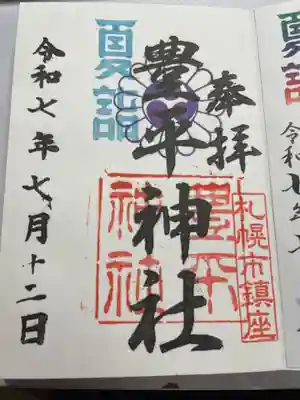 奉拝
札幌市鎮座
豊平神社
豊平
神社
夏詣
令和七年七月十二日
夏詣
令和七年七